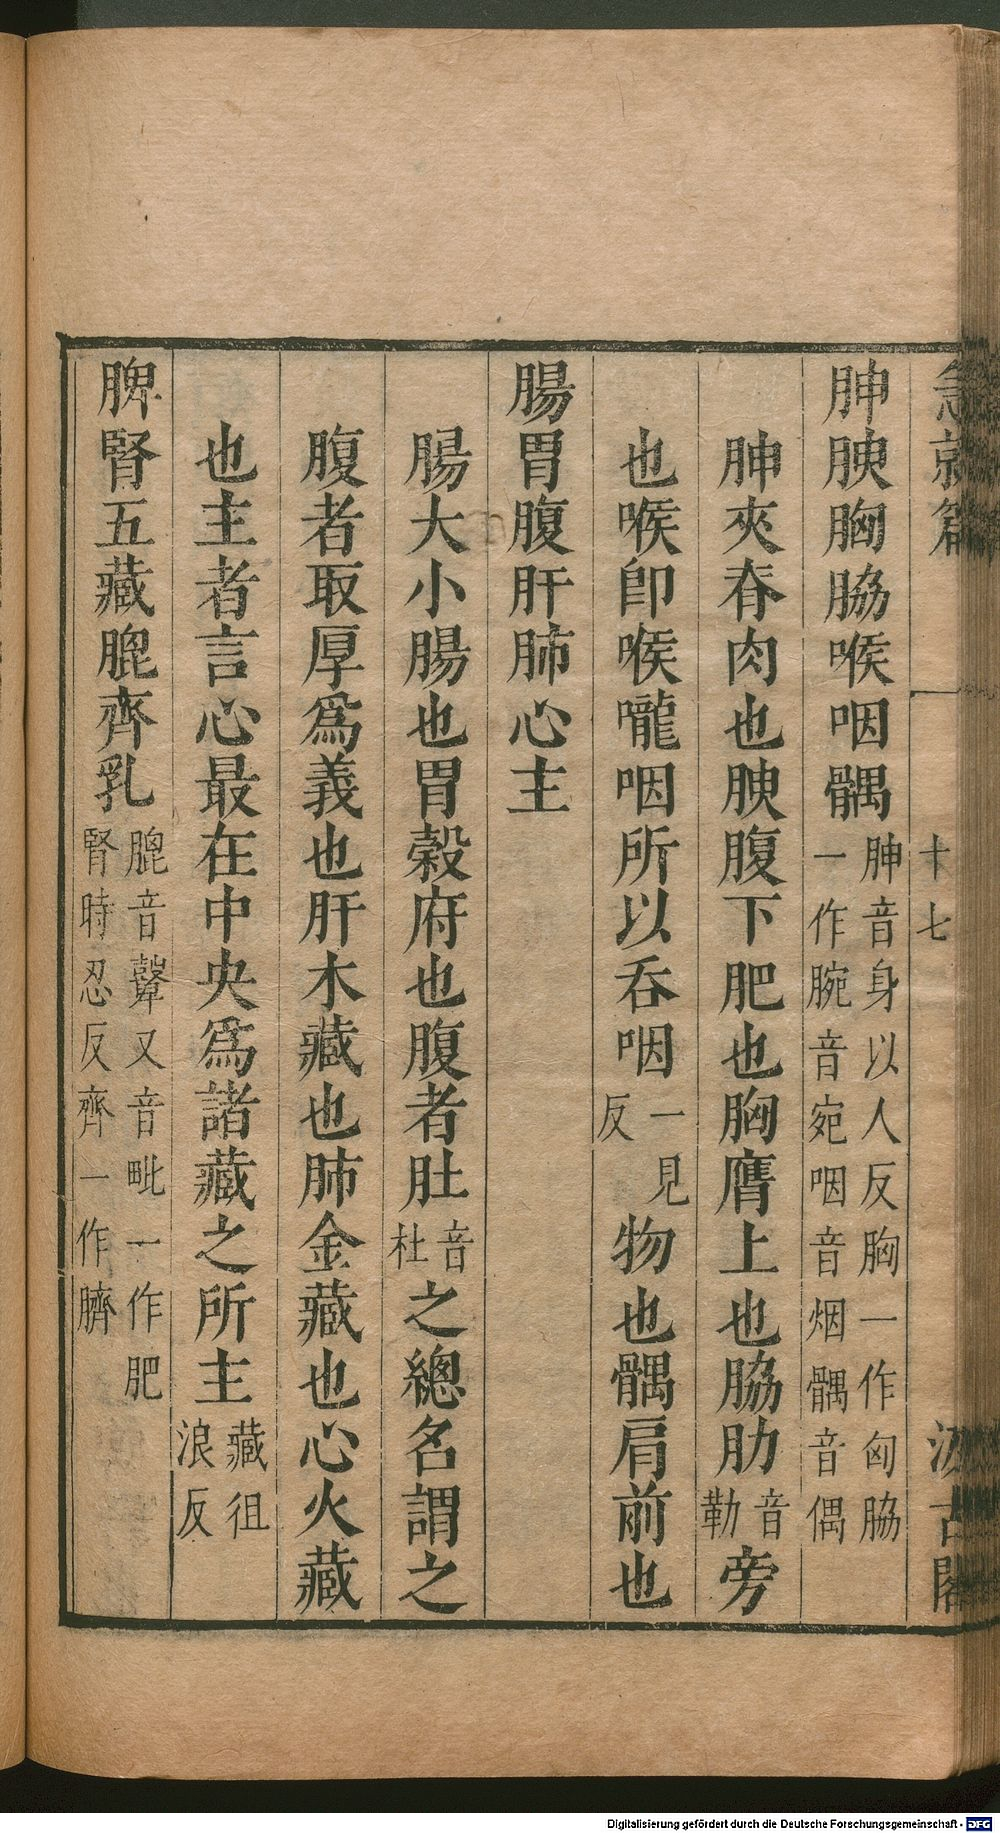 急就篇 十七 汲古閣
胂腴胸脇喉咽髃胂音身以人反胸一作匈脇一作腕音宛咽音烟髃音偶
胂夾脊肉也腴腹下肥也胸膺上也脇肋音勒旁
也喉卽喉嚨咽所以吞咽一見反物也髃肩前也
腸胃腹肝肺心主
腸大小腸也胃穀府也腹者肚音杜之總名謂之
腹者取厚爲義也肝木藏也肺金藏也心火藏
也主者言心最在中央爲諸藏之所主藏徂浪反
脾腎五藏膍齊乳膍音鼙又音毗一作肥腎時忍反齊一作臍
Digitalisierung gefördert durch die Deutsche Forschungsgemeinschaft - DFG